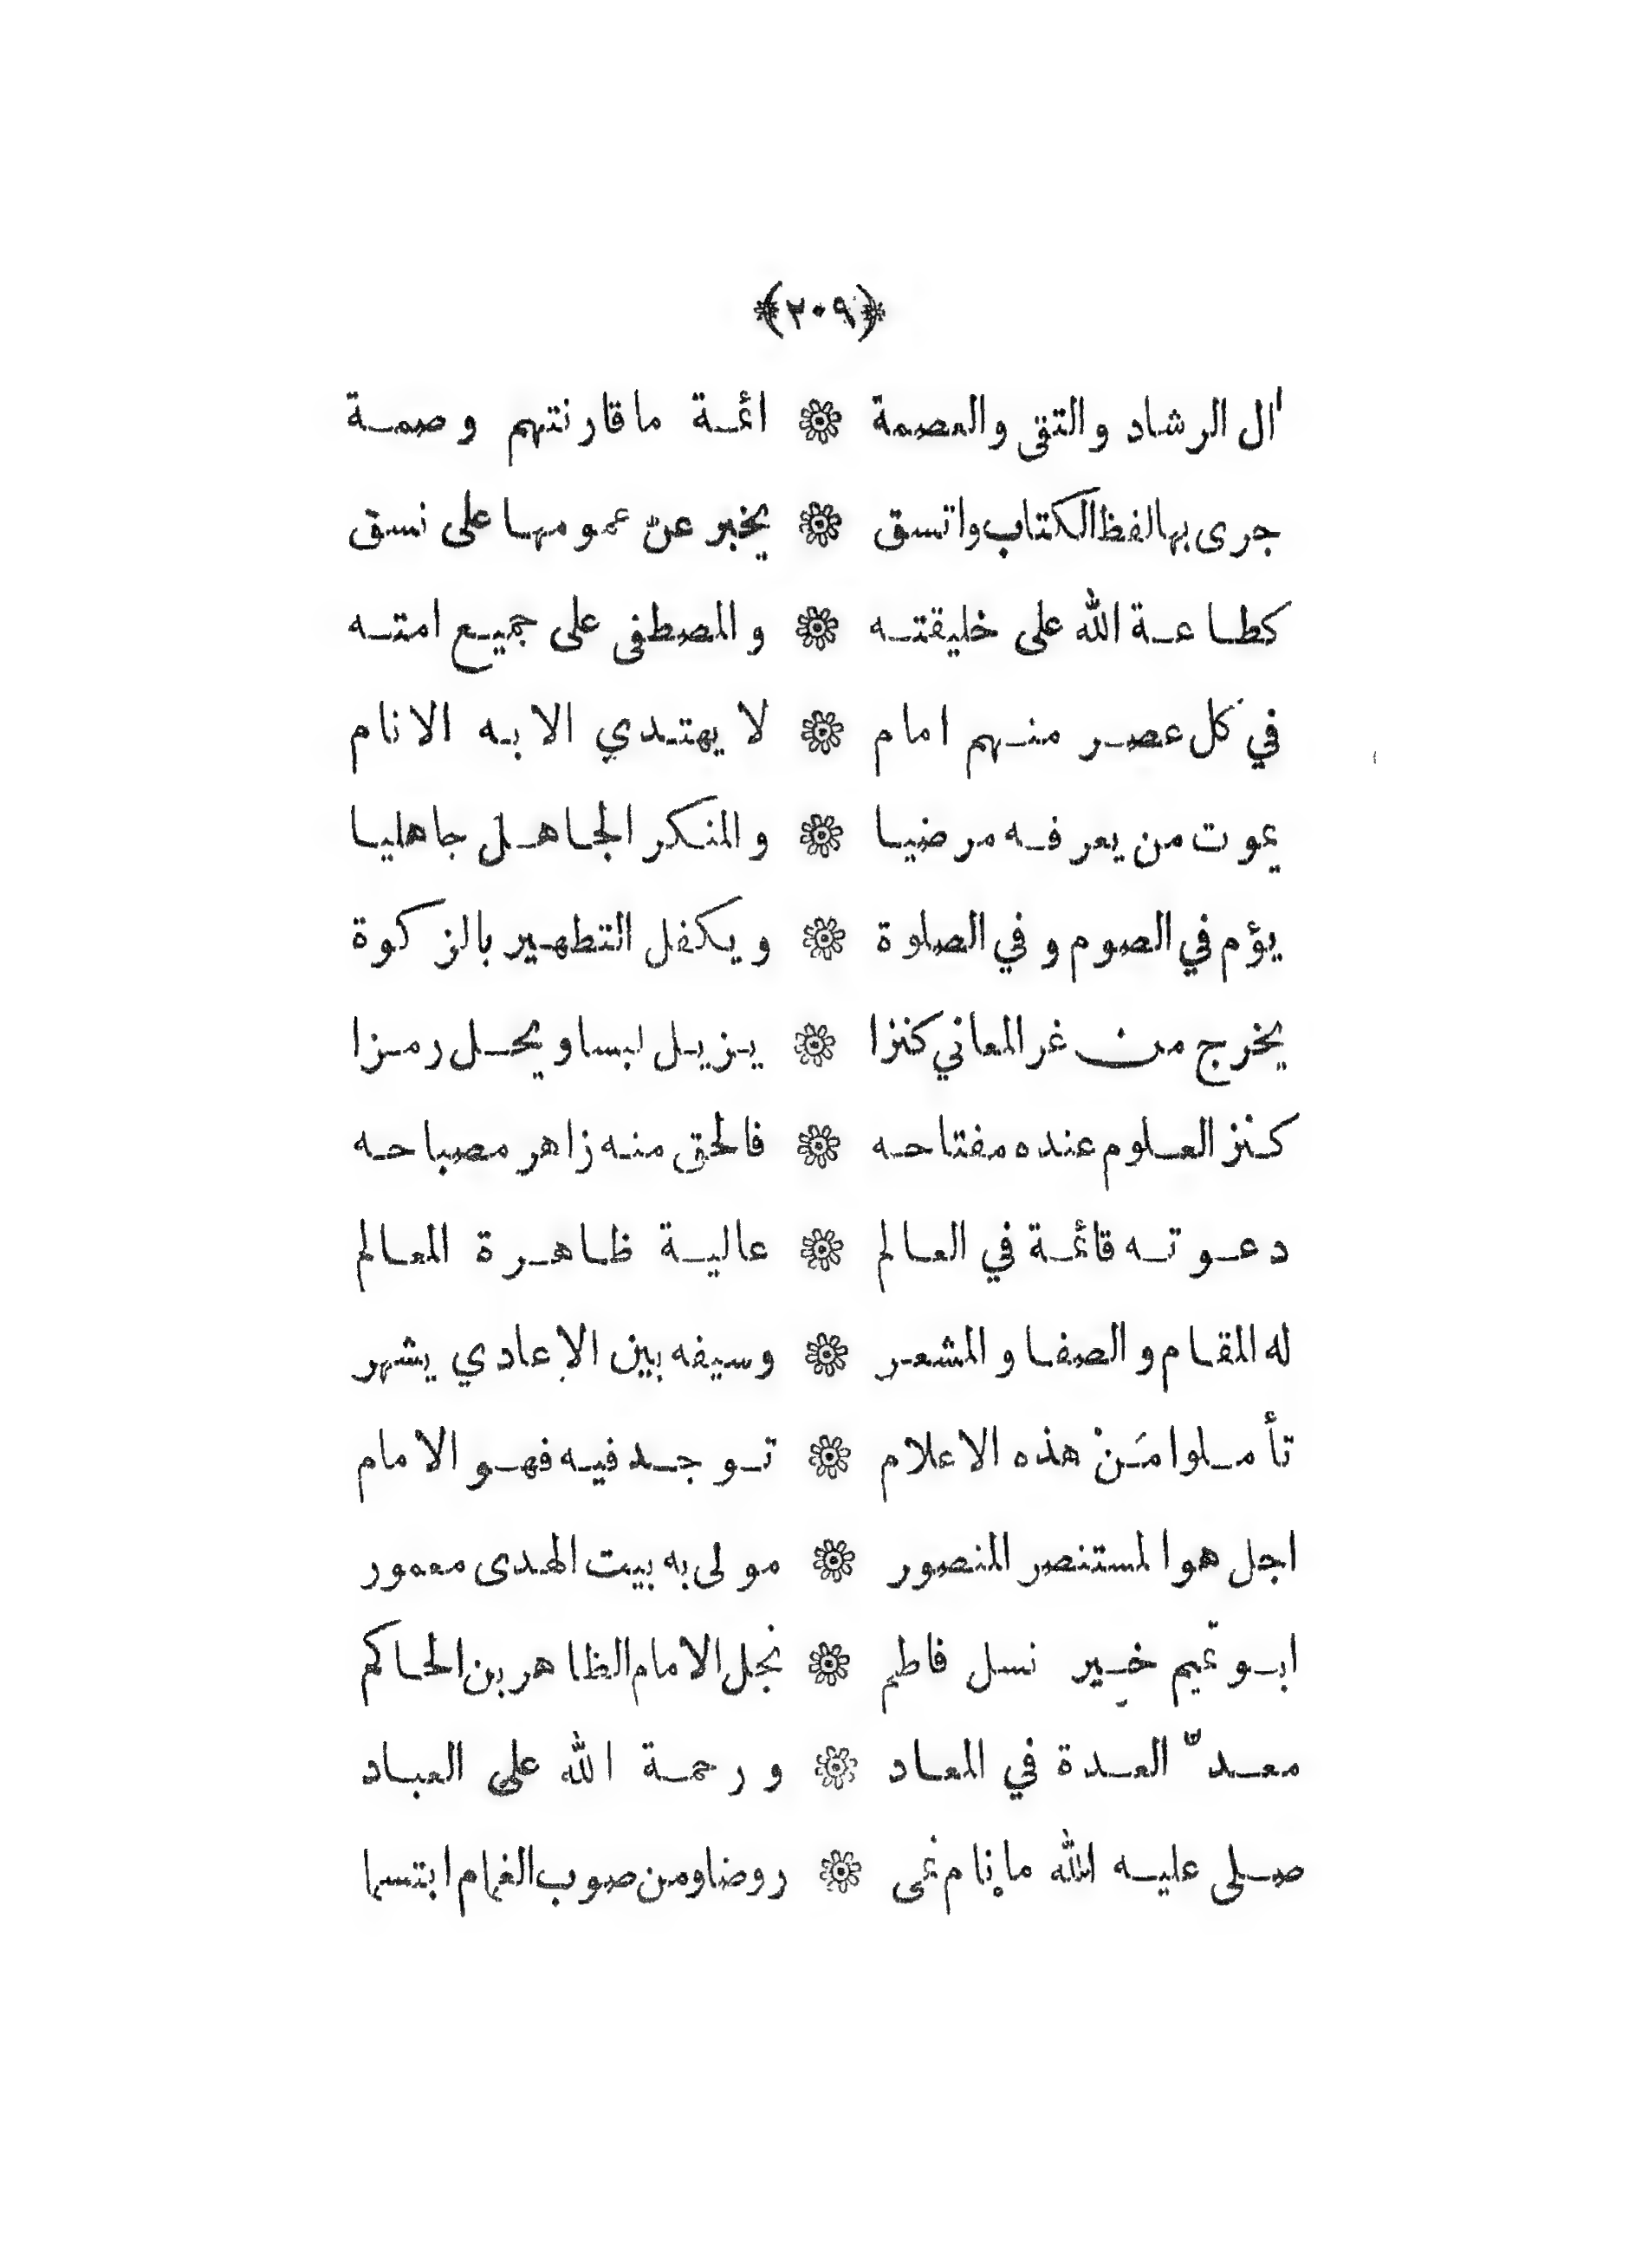 ﴿٢٠٩﴾
آل الرشاد والتقى والعصمة ۞ ائمة ما قارنتهم وصمة
جرى بها لفظ الكتاب واتسق ۞ يخبر عن عمومها على نسق
كطاعة الله على خليقته ۞ والمصطفى على جميع امته
في كل عصر منهم امام ۞ لا يهتدي الا به الانام
يموت من يعرفه مرضيا ۞ والمنكر الجاهل جاهليا
يؤم في الصوم و في الصلوة ۞ ويكفل التطهير بالزكوة
يخرج من غر المعاني كنزا ۞ يزيل لبسا ويحل رمزا
كنز العلوم عنده مفتاحه ۞ فالحق منه زاهر مصباحه
دعوته قائمة في العالم ۞ عالية ظاهرة المعالم
له المقام والصفا والمشعر ۞ وسيفه بين الاعادي يشهر
تأملوا مَنْ هذه الاعلام ۞ توجد فيه فهو الامام
اجل هو المستنصر المنصور ۞ مولى به بيت الهدى معمور
ابو تميم خير نسل فاطم ۞ نجل الامام الظاهر بن الحاكم
معدّ العدة في المعاد ۞ ورحمة الله على العباد
صلى عليه الله ما نام نمى ۞ روضا ومن صوب الغمام ابتسما